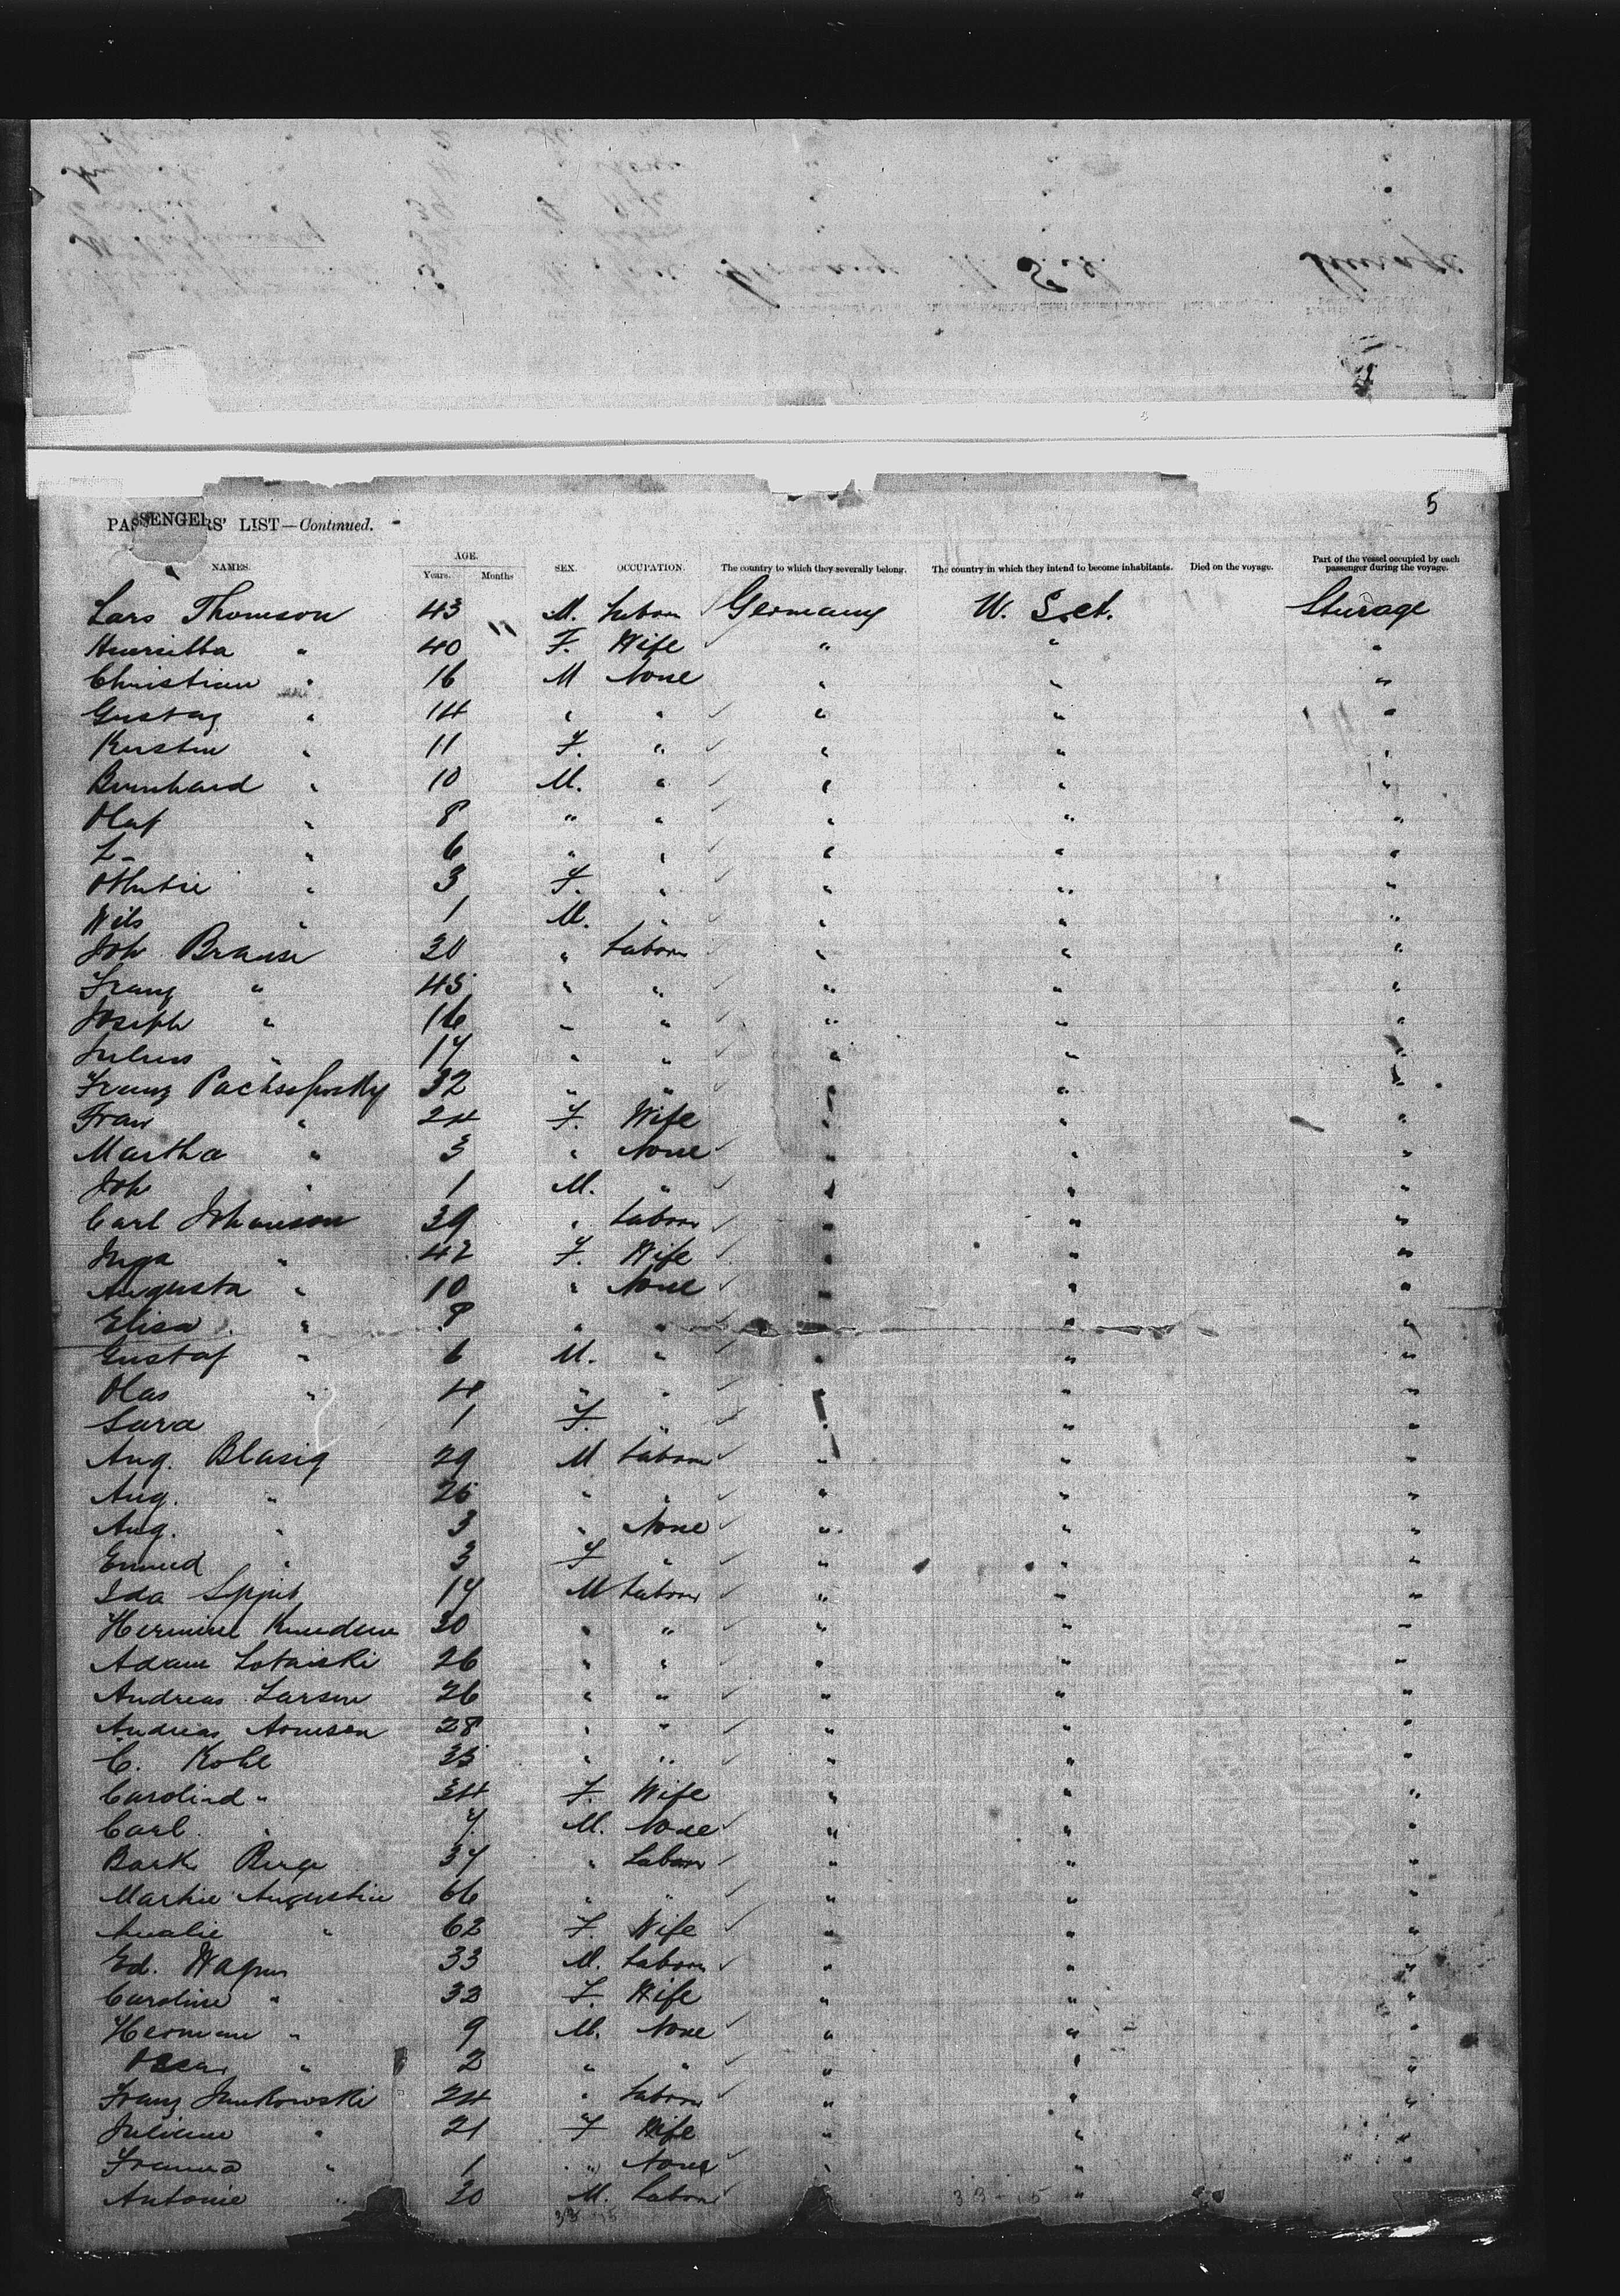 5
PASSENGERS' LIST—Continued.
NAMES. AGE. Years. Months SEX. OCCUPATION. The country to which they severally belong. The country in which they intend to become inhabitants. Died on the voyage. Part of the vessel occupied by each passenger during the voyage.
Lars Thomson 43 M. Labor Germany U. S. A. Sturage
" 40 F. Wife " " "
Christian " 16 M None " " "
Gustag " 14 " " " " "
Kirstin " 11 F. " " " "
Bernhard " 10 M. " " " "
Olaf " 8 " " " " "
L- " 6 " " " " "
" 3 F. " " " "
Nils " 1 M. " " " "
Joh Brause 20 " Labor " " "
Franz " 45 " " " " "
Joseph " 16 " " " " "
Julius " 17 " " " " "
Franz 32 " " " " "
Frau " 24 F. Wife " " "
Martha " 3 " None " " "
Joh " 1 M. " " " "
Carl Johanson 39 " Labor " " "
Inga " 42 F. Wife " " "
Augusta " 10 " None " " "
Elisa " 8 " " " " "
Gustaf " 6 M. " " " "
Olas " 4 " " " " "
Sara 1 F. " " " "
Aug. Blasig 29 M Labor " " "
Aug. " 26 " " " " "
Aug. " 3 " None " " "
" 3 F " " " "
Ida 17 M Labor " " "
Hermine Knudsen 30 " " " " "
Adam Lotaiski 26 " " " " "
Andreas Larsen 26 " " " " "
Andreas 28 " " " " "
C. Kohl 35 " " " " "
Carolind " 34 F. Wife " " "
Carl " 7 M. None " " "
Bark Berge 37 " Labor " " "
Augustin 66 " " " " "
Amalie " 62 F. Wife " " "
Ed. Wagner 33 M. Labor " " "
Caroline " 32 F. Wife " " "
Herman " 9 M. None " " "
Oscar " 2 " " " " "
Franz Jankowski 24 " Labor " " "
Juliane " 21 F Wife " " "
" 1 " None " " "
Antonie " 20 M. Labor "
33-15